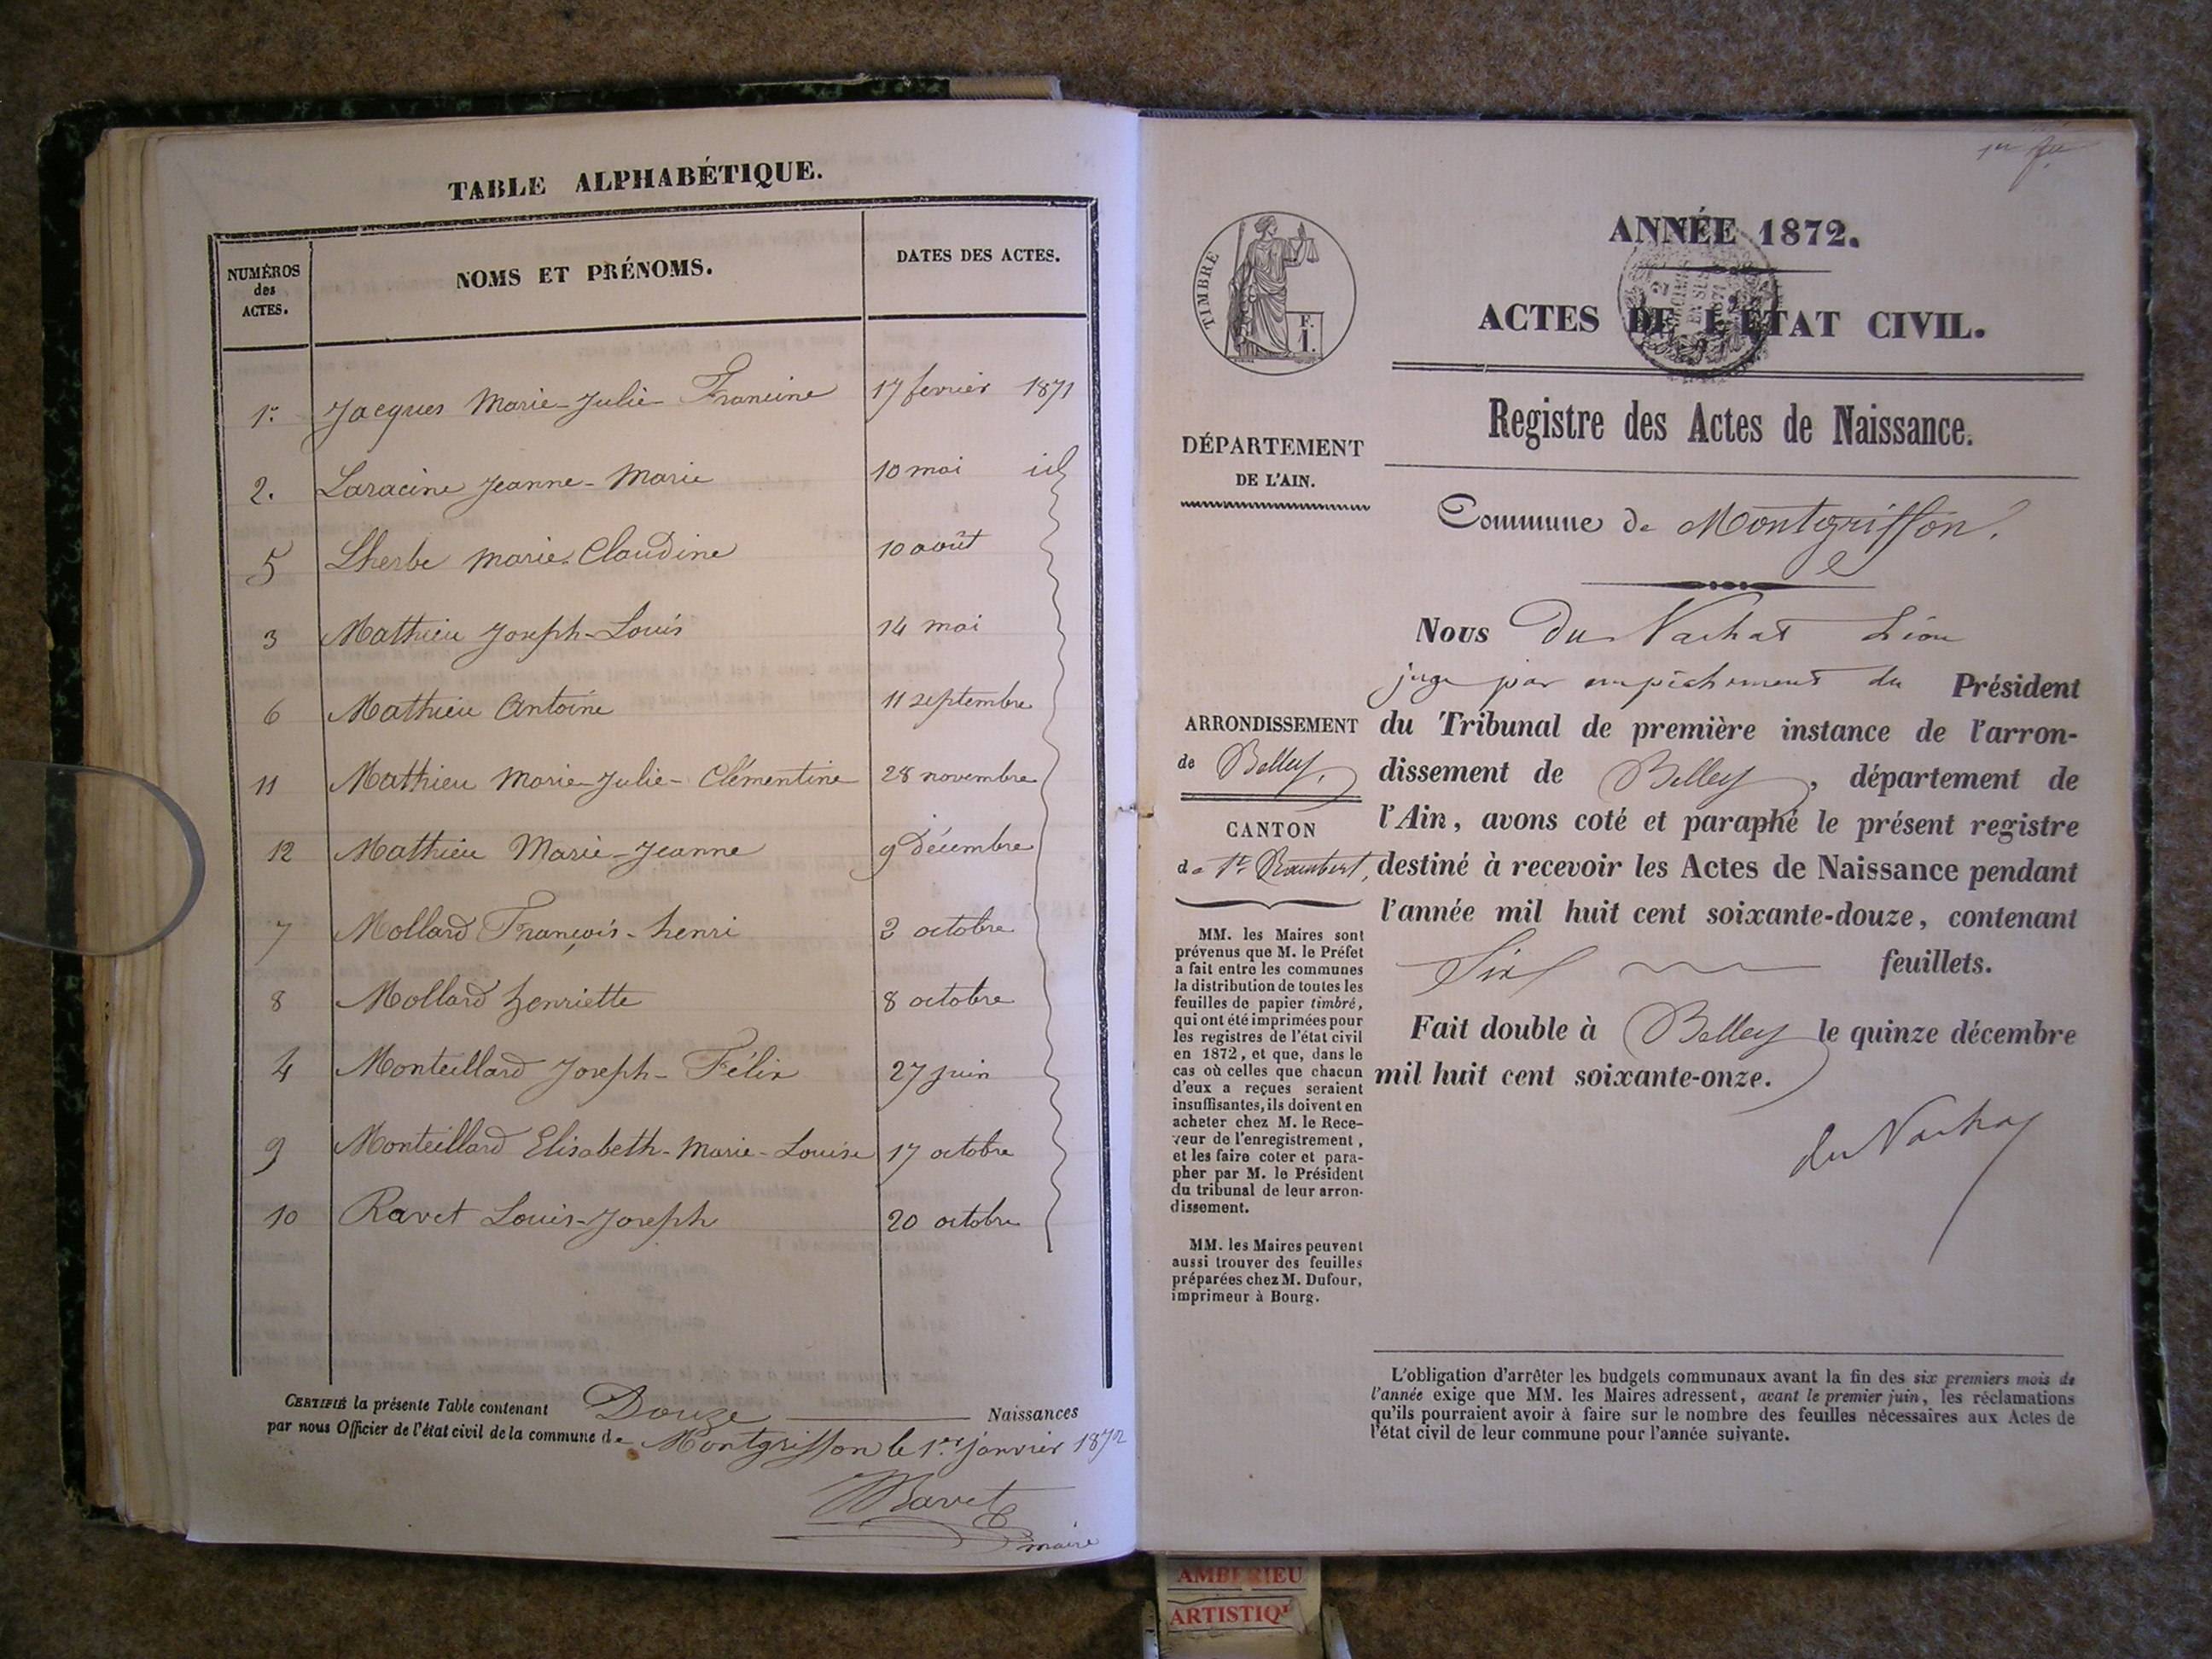 TABLE ALPHABÉTIQUE.
NUMÉROS
des
ACTES.
NOMS ET PRÉNOMS.
DATES DES ACTES.
1. Jacques Marie-Julie-Francine 17 fevrier 1871
2. Laracine Jeanne-Marie 10 mai id
5 Lherbe marie-Claudine 10 août
3 Mathieu Joseph-Louis 14 mai
6 Mathieu Antoine 11 septembre
11 Mathieu Marie-Julie-Clémentine 28 novembre
12 Mathieu Marie-Jeanne 9 Décembre
7 Mollard François-henri 2 octobre
8 Mollard henriette 8 octobre
4 Monteillard Joseph-Félix 27 juin
9 Monteillard Elisabeth-Marie-Louise 17 octobre
10 Ravet Louis-Joseph 20 octobre
CERTIFIÉ la présente Table contenant Douze Naissances
par nous Officier de l'état civil de la commune de Montgriffon le 1er janvier 1872
Ravet
maire
ANNÉE 1872.
TIMBRE
F.
1.
ACTES DE L'ÉTAT CIVIL.
Registre des Actes de Naissance.
DÉPARTEMENT
DE L'AIN.
Commune de Montgriffon.
Nous Du Vachat Léon
juge par empêchement du Président
du Tribunal de première instance de l'arron-
dissement de Belley, département de
l'Ain, avons coté et paraphé le présent registre
destiné à recevoir les Actes de Naissance pendant
l'année mil huit cent soixante-douze, contenant
Six feuillets.
Fait double à Belley le quinze décembre
mil huit cent soixante-onze.
du Vachat
ARRONDISSEMENT
de Belley.
CANTON
de St Rambert,
MM. les Maires sont
prévenus que M. le Préfet
a fait entre les communes
la distribution de toutes les
feuilles de papier timbré,
qui ont été imprimées pour
les registres de l'état civil
en 1872, et que, dans le
cas où celles que chacun
d'eux a reçues seraient
insuffisantes, ils doivent en
acheter chez M. le Rece-
veur de l'enregistrement,
et les faire coter et para-
pher par M. le Président
du tribunal de leur arron-
dissement.
MM. les Maires peuvent
aussi trouver des feuilles
préparées chez M. Dufour,
imprimeur à Bourg.
L'obligation d'arrêter les budgets communaux avant la fin des six premiers mois de
l'année exige que MM. les Maires adressent, avant le premier juin, les réclamations
qu'ils pourraient avoir à faire sur le nombre des feuilles nécessaires aux Actes de
l'état civil de leur commune pour l'année suivante.
AMBERIEU
ARTISTIQ